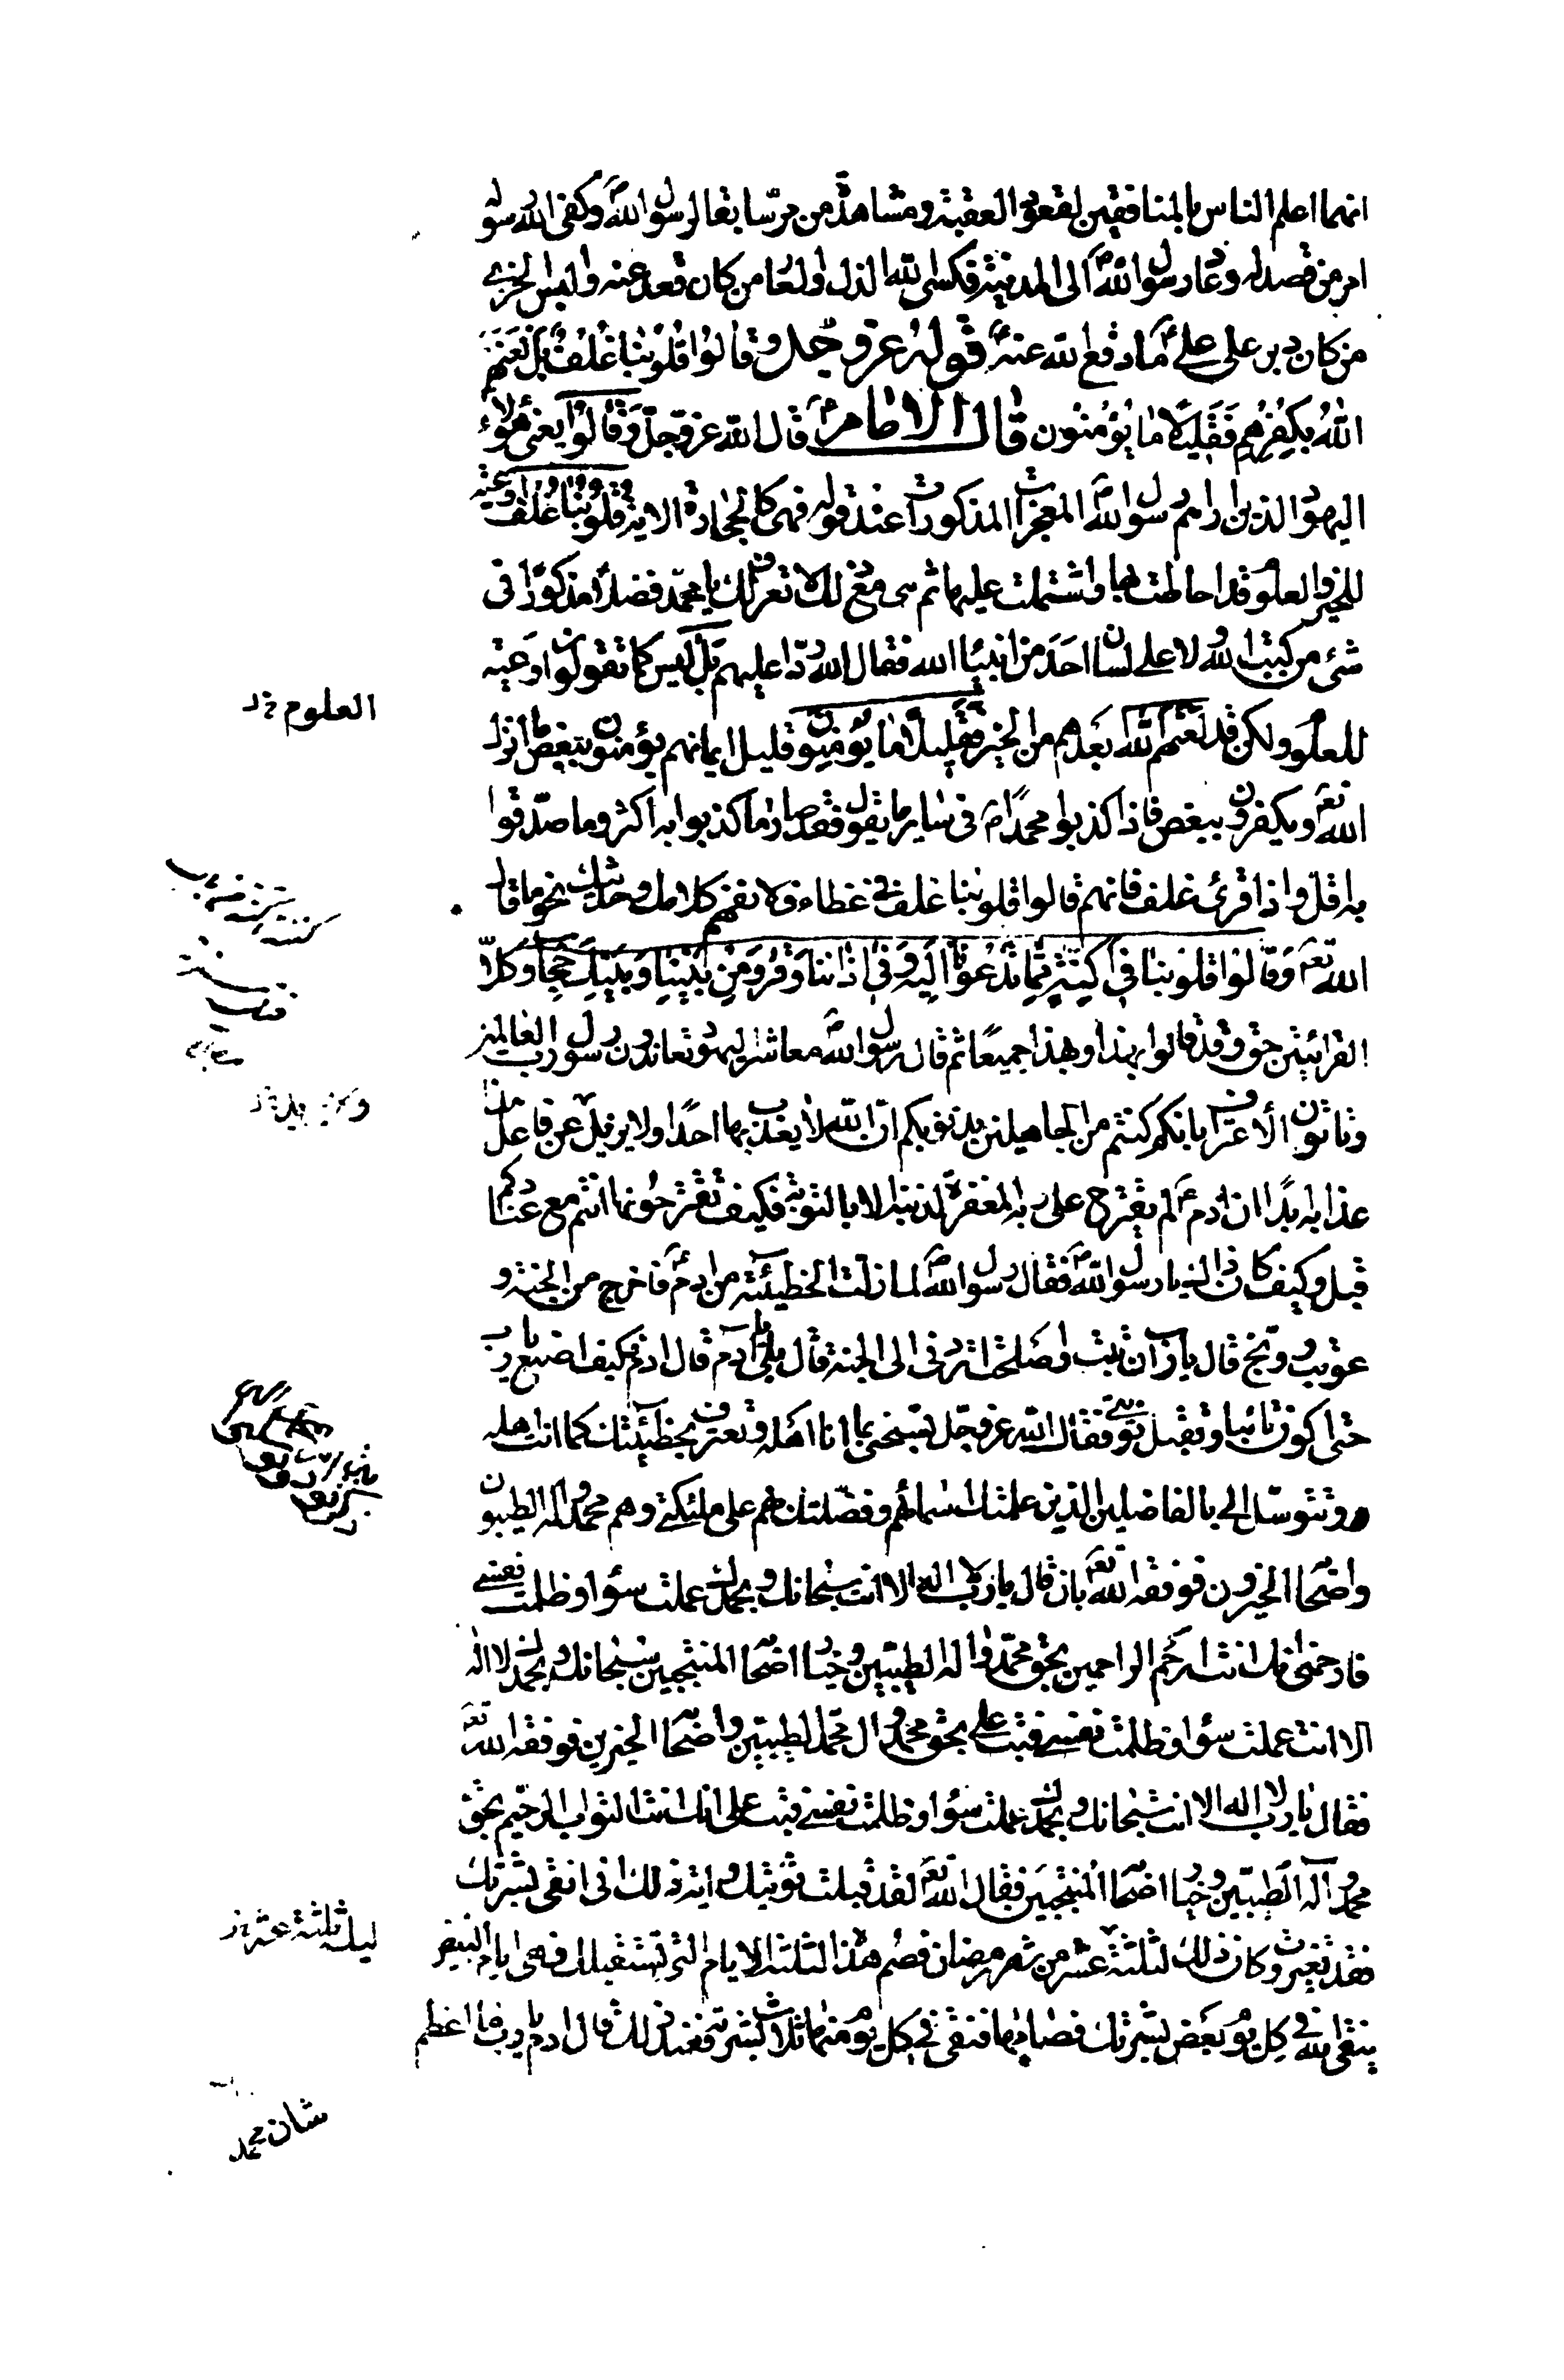 انهما اعلم الناس بالمنافقين لقعوده العقبة ومشاهدة من مر سابقا لرسول الله ص وكفى الله رسوله
امر من قصد له وعاد رسول الله ص الى المدينة فكسى الله الذل والعار من كان قعد عنه والبس الخزي
من كان دبر على علي ع ما دفع الله عنه قوله عز وجل وَقالُوا قُلُوبُنا غُلْفٌ بَلْ لَعَنَهُمُ
اللهُ بِكُفْرِهِمْ فَقَلِيلًا مَا يُؤْمِنُونَ قال الامام ع قال الله عز وجل وَقالُوا يعنى هؤلاء
اليهود الذين اراهم رسول الله ص المعجزات المذكورات عند قوله فهى كالحجارة الاية قُلُوبُنا غُلْفٌ اوعية
للخير والعلوم قد احاطت بها واشتملت عليها ثم هى مع ذلك لا تعرف لك يا محمد فضلا مذكورا فى
شئ من كتب الله ولا على لسان احد من انبياء الله فقال الله ردا عليهم بل ليس كما تقولون اوعية
للعلوم ولكن قد لعنهم الله بعدهم من الخير فقليلا ما يؤمنون قليل ايمانهم يؤمنون ببعض ما انزل
الله تع ويكفرون ببعض فاذا كذبوا محمدا ص فى ساير ما يقول فقد صار ما كذبوا به اكثر وما صدقوا
به اقل واذا قرئ غلف فانهم قالوا قلوبنا غلف فى غطاء فلا نفهم كلامك وحديثك نحو ما قال
الله تع وَقالُوا قُلُوبُنا فِي اَكِنَّةٍ مِمَّا تَدْعُونا اِلَيْهِ وَفِي اذانِنا وَقْرٌ وَمِنْ بَيْنِنا وَبَيْنِكَ حِجابٌ وكلا
القرائتين حق وقد قالوا بهذا وبهذا جميعا ثم قال رسول الله ص معاشر اليهود تعاندون رسول رب العالمين
وتابون الاعتراف بانكم كنتم من الجاهلين بذنوبكم ان الله لا يعذب بها احدا ولا يزيل عن فاعل هذا
عذابه ابدا ان ادم ع لم يقترح على ربه المغفرة لذنبه الا بالتوبة فكيف تقترحونها انتم مع عنادكم
قيل وكيف كان ذلك يا رسول الله ص فقال رسول الله ص لما زلت الخطيئة من ادم ع فاخرج من الجنة و
عوتب ووبخ قال يا رب ان تبت واصلحت اتردنى الى الجنة قال بلى يا ادم قال ادم فكيف اصنع يا رب
حتى اكون تائبا وتقبل توبتى فقال الله عز وجل تسبحنى بما انا اهله وتعترف بخطيئتك كما انت اهله
وتتوسل الى بالفاضلين الذين علمتك اسمائهم وفضلتك بهم على ملئكتى وهم محمد واله الطيبون
واصحابه الخيرون فوفقه الله تع بان قال يا رب لا اله الا انت سبحانك وبحمدك عملت سوءا وظلمت نفسى
فارحمنى انك انت ارحم الراحمين بحق محمد واله الطيبين وخيار اصحابه المنتجبين سبحانك وبحمدك لا اله
الا انت عملت سوءا وظلمت نفسى فتب على بحق محمد وال محمد الطيبين واصحابه الخيرين فوفقه الله تع
فقال يا رب لا اله الا انت سبحانك وبحمدك عملت سوءا وظلمت نفسى فتب على انك انت التواب الرحيم بحق
محمد وآله الطيبين وخيار اصحابه المنتجبين فقال الله تع لقد قبلت توبتك واية ذلك انى انقى بشرتك
فقد تغيرت وكان ذلك لثلثة عشر من شهر رمضان فصم هذه الثلثة الايام التى تستقبلك فهى ايام البيض
ينقى الله فى كل يوم بعض بشرتك فصامها فنقى فى كل يوم منها ثلث بشرته فعند ذلك قال ادم يا رب ما اعظم
العلوم خ د
ليلة ثلثة عشر خ ز
شان محمد